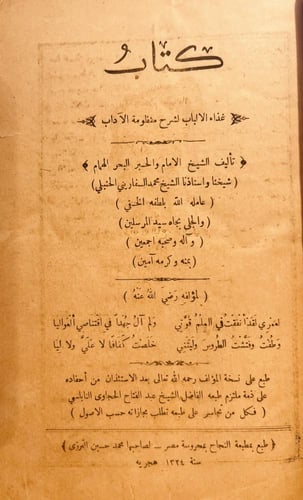 كتاب
غذاء الالباب لشرح منظومة الآداب
﴿ تأليف الشيخ الامام والحبر البحر الهمام ﴾
( شيخنا واستاذنا الشيخ محمد السفاريني الحنبلي )
( عامله الله بلطفه الخفي )
( والجلي بجاه سيد المرسلين )
( وآله وصحبه اجمعين )
( بمنه وكرمه آمين )
( لمؤلفه رضي الله عنه )
لعمري لقد أنفقت في العلم قوتي ولم آل جهدا في اقتناصي الغواليا
وطفت وفتشت الطروس وليتني خلصت كفافا لا علي ولا ليا
طبع على نسخة المؤلف رحمه الله تعالى بعد الاستئذان من أحفاده
على ذمة ملتزم طبعه الفاضل الشيخ عبد الفتاح الحجاوي النابلسي
( فكل من تجاسر على طبعه تطلب مجازاته حسب الاصول )
﴿ طبع بمطبعة النجاح بمحروسة مصر ـ لصاحبها محمد حسين العزوي ﴾
سنة ١٣٢٤ هجريه